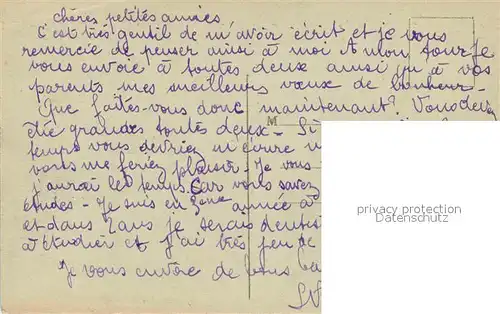 chères petites amies
C'est très gentil de m'avoir écrit et je vous
remercie de penser ainsi à moi A mon tour je
vous envoie à toutes deux ainsi qu'à vos
parents mes meilleurs vœux de bonheur.
Que faites-vous donc maintenant? Vous devez
être grandes toutes deux - Si
temps vous devriez m'écrire
vous me feriez plaisir. Je vous
j'aurai le temps. Car vous savez
études - Je suis en 3ème année
et dans 2 ans je serais
à étudier et j'ai très peu de
Je vous envoie de bons
M
privacy protection
Datenschutz